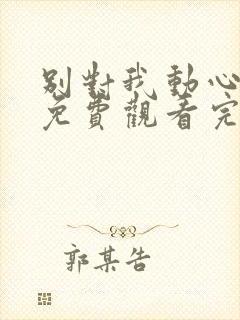 別對我動心
免費觀看完
郭某告